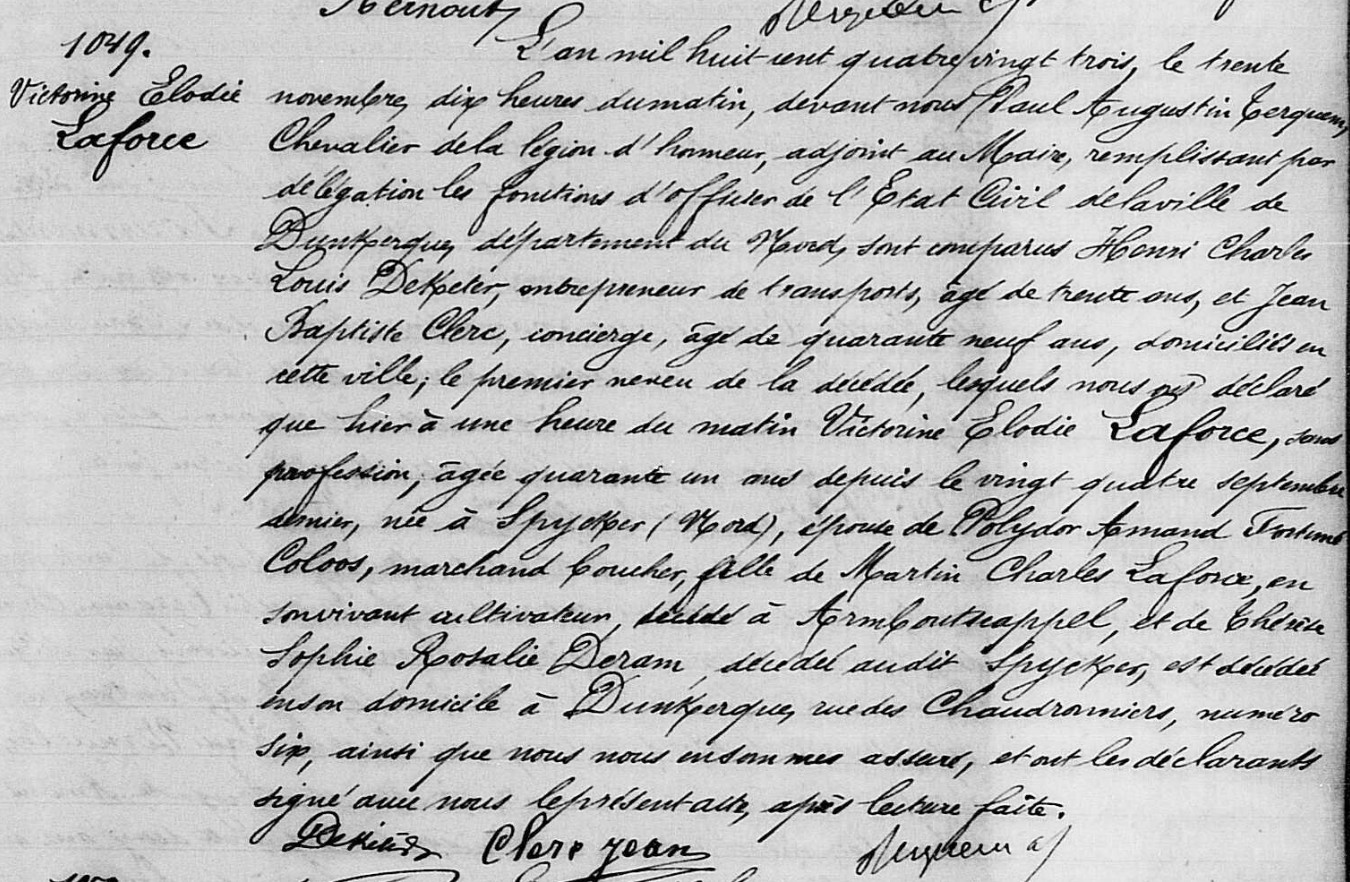 1049.
Victorine Elodie
Laforce
L'an mil huit cent quatre vingt trois, le trente
novembre, dix heures du matin, devant nous Paul Augustin Terquem,
Chevalier de la légion d'honneur, adjoint au Maire, remplissant par
délégation les fonctions d'officier de l'Etat Civil de la ville de
Dunkerque, département du Nord, sont comparus Henri Charles
Louis DeKeter, entrepreneur de transports, âgé de trente ans, et Jean
Baptiste Clerc, concierge, âgé de quarante neuf ans, domiciliés en
cette ville; le premier neveu de la décédée, lesquels nous ont déclaré
que hier à une heure du matin Victorine Elodie Laforce, sans
profession, âgée quarante un ans depuis le vingt quatre septembre
dernier, née à Spycker (Nord), épouse de Polydor Amand Fortuné
Coloos, marchand boucher, fille de Martin Charles Laforce, en
son vivant cultivateur, décédé à Armboutscappel, et de Thérèse
Sophie Rosalie Deram, décédée audit Spycker, est décédée
en son domicile à Dunkerque, rue des Chaudronniers, numéro
six, ainsi que nous nous en sommes assuré, et ont les déclarants
signé avec nous le présent acte, après lecture faite.
Clerc jean
Terquem aj